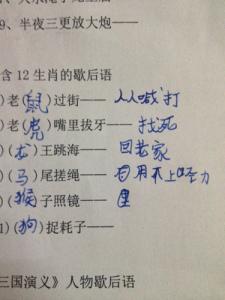 9、半夜三更放大炮——
含12生肖的歇后语
)老(鼠)过街—— 人人喊打
)老(虎)嘴里拔牙—— 找死
)(龙)王跳海—— 回老家
)(马)尾搓绳—— 用不上力
)(猴)子照镜——
1)(狗)捉耗子——
三国演义》人物歇后语